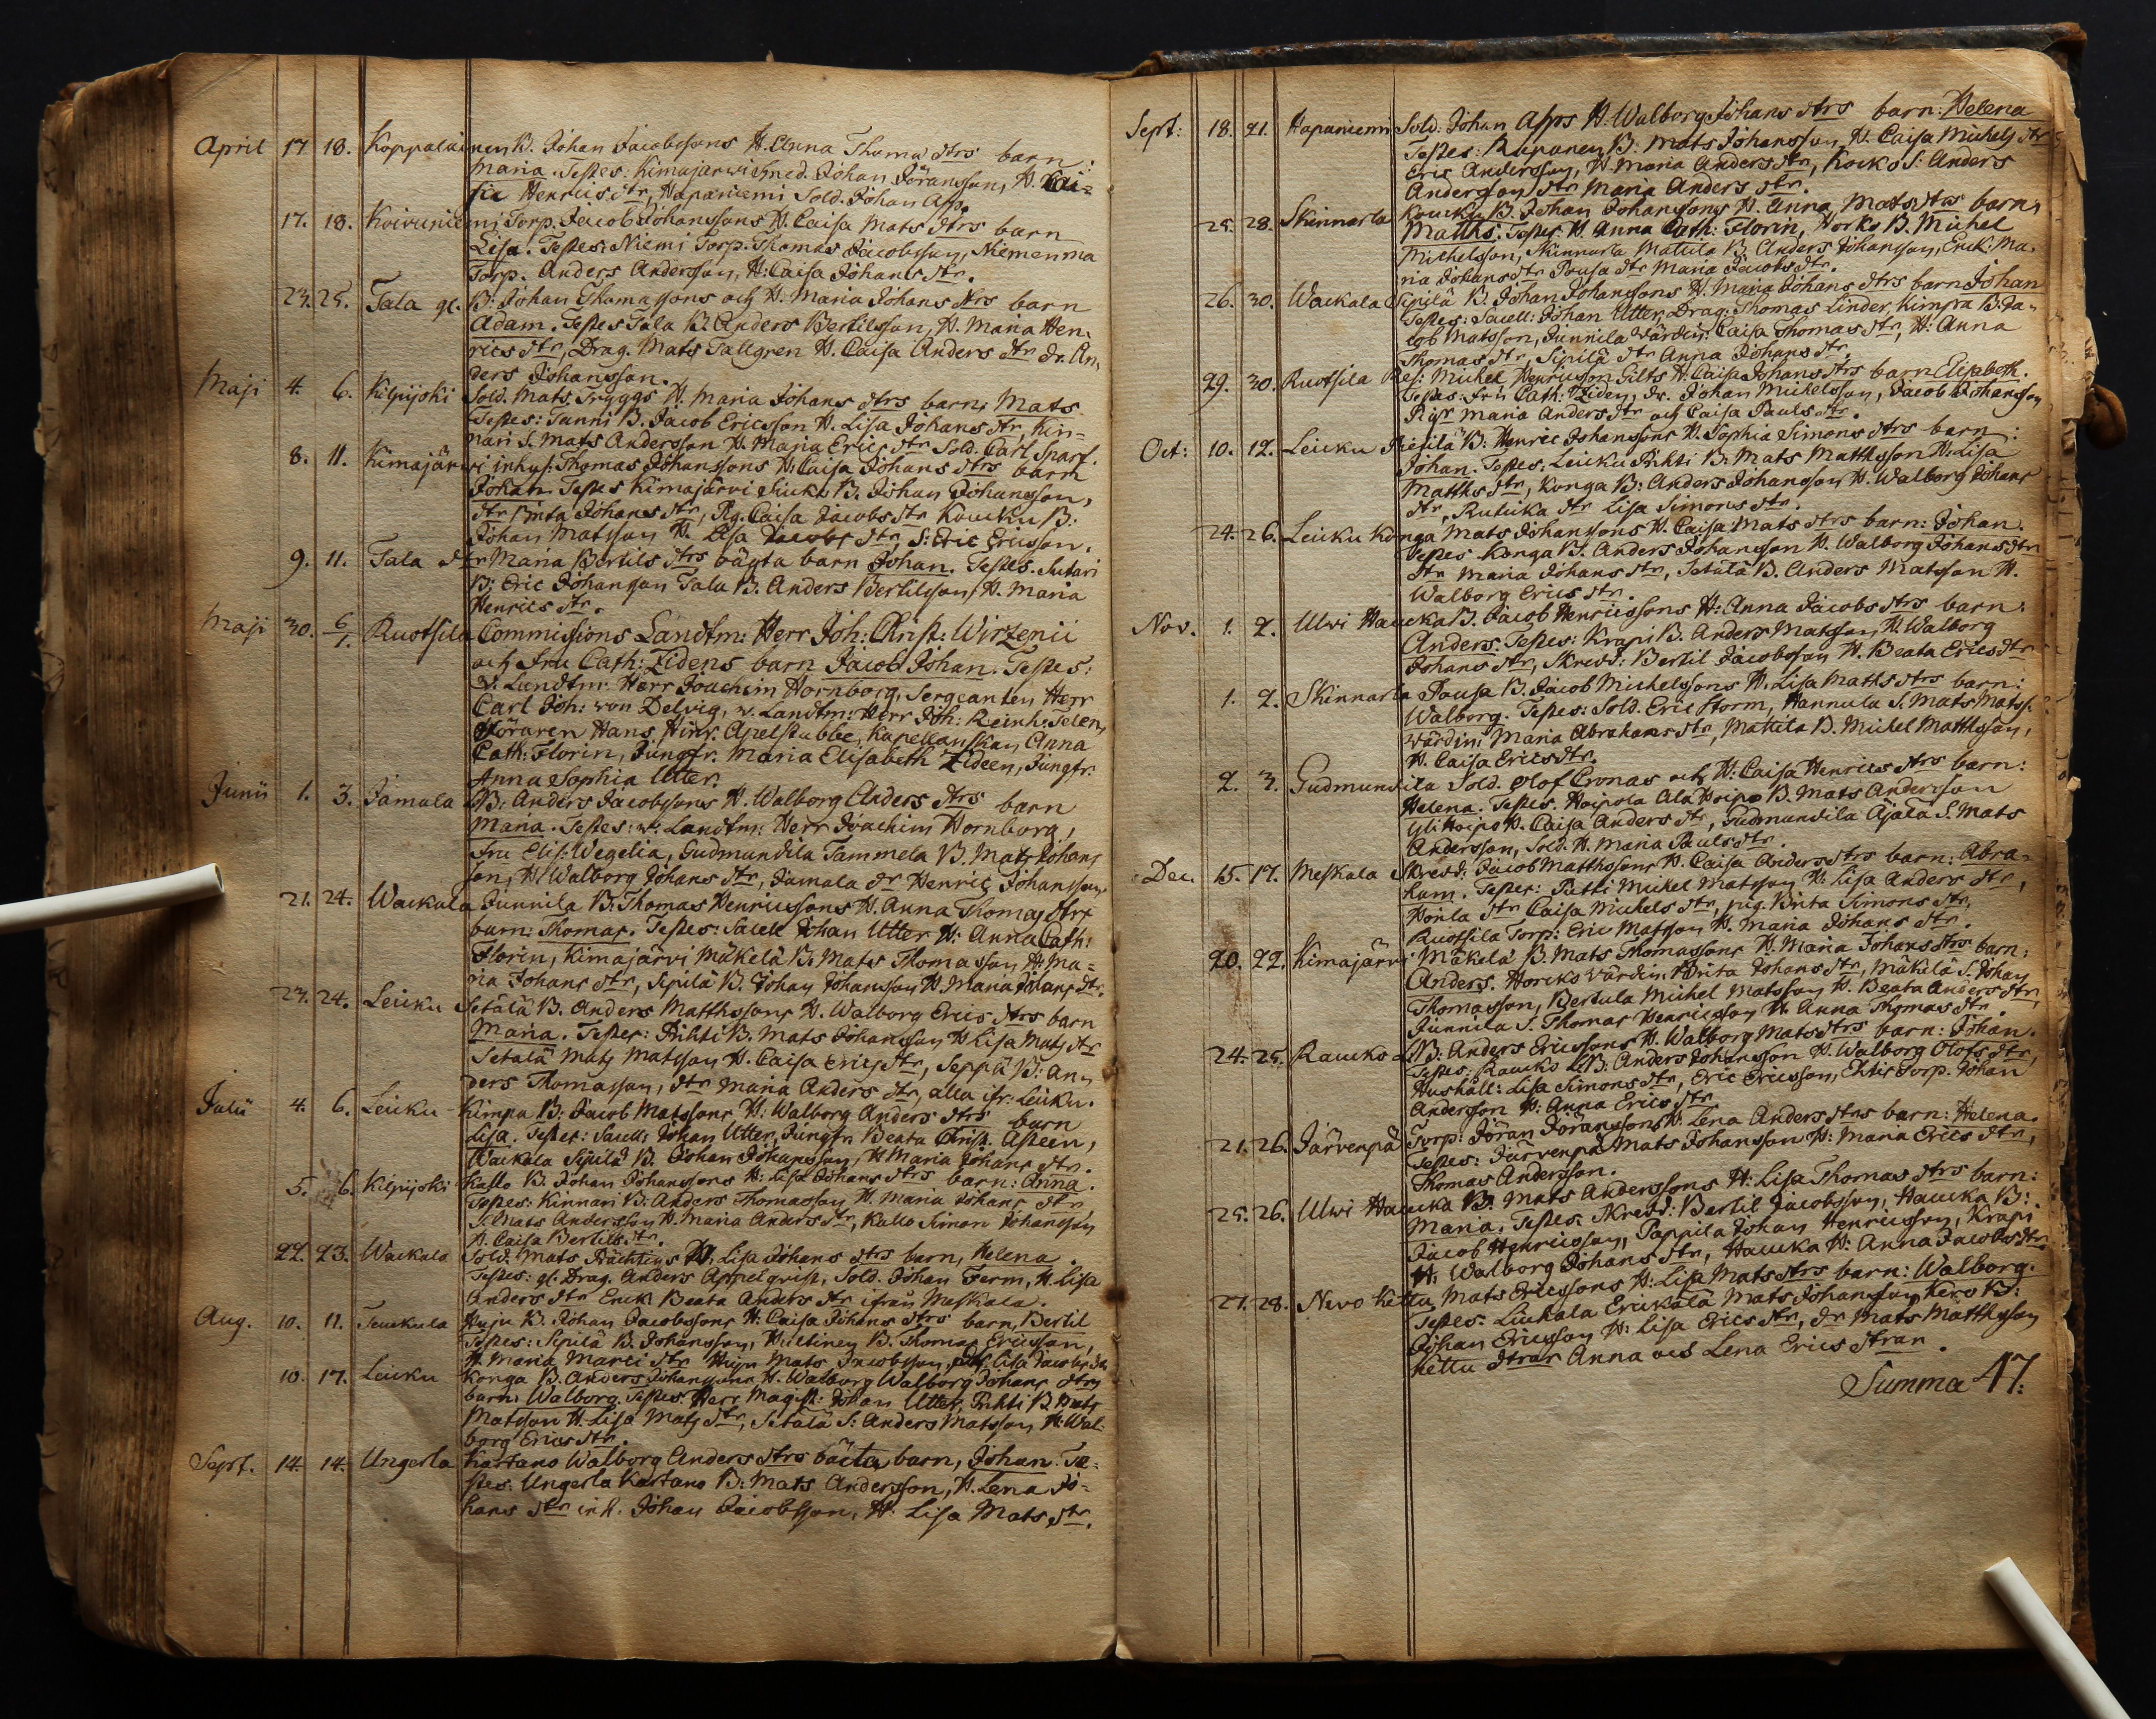 April 17 18. Koppalainen B. Johan Jacobssons H. Anna Thomæ dtrs barn:
Maria. Testes: Kimajärwi Smed. Johan Jöransson, H. Cai=
sa Henrics dtr, Hapaniemi Sold. Johan App.
17. 18. Koivuniemi Torp. Jacob Johanssons H. Caisa Mats dtrs barn
Lisa. Testes: Niemi Torp. Thomas Jacobsson, Niemenma
Torp. Anders Andersson, H: Caisa Johans dtr.
23. 25. Tala gl. B: Johan Thomassons och H. Maria Johans dtrs barn
Adam. Testes Tala B. Anders Bertilsson, H. Maria Hen-
rics dtr, Drag. Mats Tallgren H. Caisa Anders dtr dr. An-
ders Johansson.
Maji 4. 6. Kilpijoki Sold. Mats Tryggs H. Maria Johans dtrs barn: Mats
Testes: Tanni B. Jacob Ericsson H. Lisa Johans dtr, Kin-
nari S. Mats Andersson H. Maria Erics dtr Sold. Carl Sparf.
8. 11. Kimajärwi inhys: Thomas Johanssons H: Caisa Johans dtrs barn
Johan. Testes Kimajärvi Siuko B. Johan Johansson,
dtr Brita Johans dtr, Pig. Caisa Jacobs dtr Koucku B:
Johan Matsson H. Lisa Jacobs dtr, S: Eric Ericsson.
9. 11. Tala dtr Maria Bertils dtrs oägta barn Johan. Testes. Sutari
B: Eric Johansson Tala B. Anders Bertilsson, H. Maria
Henrics dtr.
Maji 30. 6/1. Ruotsila Commissions Landtm: Herr Joh: Christ: Wirzenii
och Fru Cath: Zidens barn Jacob Johan. Testes:
v: Landtm: Herr Joachim Hornborg, Sergeanten Herr
Carl Joh: von Delvig, v. Landtm: Herr Joh: Reinh: Telen,
Föraren Hans Hinr. Apelstubbe, Kapellanskan Anna
Cath: Florin, Jungfr. Maria Elisabeth Zideen, Jungfr.
Anna Sophia Utter.
Junii 1. 3. Jamala B: Anders Jacobssons H. Walborg Anders dtrs barn
Maria. Testes: v: Landtm: Herr Joachim Hornborg,
Fru Elis: Wegelia, Gudmundila Tammela B. Mats Johans
son, H: Walborg Johans dtr, Jamala dr Henric Johansson.
21. 24. Wackala Junnila B: Thomas Henricssons H. Anna Thomas dtrs
barn: Thomas. Testes: Sacell. Johan Utter H: Anna Cath:
Florin, Kimajärvi Mäkelä B: Mats Thomasson H: Ma=
ria Johans dtr, Sipilä B. Johan Johansson H. Maria Johans dtr.
23. 24. Leicku Setälä B. Anders Matthssons H. Walborg Erics dtrs barn
Maria. Testes: Prihti B. Mats Johansson H Lisa Mats dtr
Setälä Mats Matsson H. Caisa Erics dtr, Seppä B: An-
ders Thomasson, dtr Maria Anders dtr, alla ifr: Leicku.
Julii 4. 6. Leicku Kimpa B: Jacob Matssons H: Walborg Anders dtrs barn
Lisa. Testes: Sacell: Johan Utter, Jungfr Beata Christ. Asteen,
Wackala Sipilä B. Johan Johansson, H Maria Johans dtr.
5. 6. Kilpijoki Kallo B. Johan Johanssons H: Lisa Johans dtrs barn: Anna.
Testes: Kinnari B: Anders Thomasson H. Maria Johans dtr,
S. Mats Andersson H. Maria Anders dtr, Kallo Simon Johansson
H. Caisa Bertils dtr.
22. 23. Wackala Sold: Mats H: Lisa Johans dtrs barn, Helena.
Testes: gl. Drag. Anders Appelqvist, Sold. Johan Ferm, H. Lisa
Anders dtr Enck: Beata Anders dtr ifrån Meskala.
Aug. 10. 11. Teuckula Huju B. Johan Jacobssons H: Caisa Johans dtrs barn, Bertil
Testes: Sipilä B. Johansson, B. Thomas Ericsson,
H. Maria Marci dtr Huju Mats Jacobsson, Lisa Jacobs dtr
10. 17. Leicku Konga B. Anders Johanssons H. Walborg Walborg Johans dtrs
barn: Walborg. Testes. Herr Magist: Johan Utter, Prihti B Mats
Matsson H. Lisa Mats dtr, Setälä S: Anders Matsson, H: Wal-
borg Erics dtr.
Sept. 14. 14. Ungerla Kartano Walborg Anders dtrs oäcta barn, Johan. Te=
stes. Ungerla Kartano B: Mats Andersson, H. Lena Jo-
hans dtr inh. Johan Jacobsson, H: Lisa Mats dtr.
Sept: 18. 21. Hapaniemi Sold: Johan Apps H: Walborg Johans dtrs barn: Helena
Testes: Ruponen B: Mats Johansson, H. Caisa Michels dtr
Eric Andersson, H. Maria Anders dtr, Kocko S: Anders
Andersson dtr Maria Anders dtr.
25. 28. Skinnarla Koucku B. Johan Johanssons H. Anna Mats dtrs barn,
Matths: Testes: H Anna Cath: Florin, Horko B. Michel
Michelsson, Skinnarla Matula B. Anders Johansson, Enck: Ma-
ria Johans dtr Pousa dtr Maria Jacobs dtr.
26. 30. Wackala Sipilä B. Johan Johanssons H. Maria Johans dtrs barn Johan
Testes: Sacell: Johan Utter, Drag: Thomas Linder, Kimpa B: Ja-
cob Matsson, Junnila Wärdin: Caisa Thomas dtr, H: Anna
Thomas dtr, Sipilä dtr Anna Johans dtr.
29. 30. Ruotsila Res: Michel Henricsson Gilts H: Caisa Johans dtrs barn Elisabeth.
Testes: Fru Cath: Ziden, dr. Johan Michelsson, Jacob Johansson
Pigr Maria Anders dtr och Caisa Pauls dtr.
Oct: 10. 12. Leicku Pietilä B: Henric Johanssons H. Sophia Simons dtrs barn:
Johan. Testes: Leicku Prihti B: Mats Matthsson H: Lisa
Matths dtr, Konga B: Anders Johansson H. Walborg Johans
dtr, Rutuka dtr Lisa Simons dtr.
24. 26. Leicku Konga Mats Johanssons H. Caisa Mats dtrs barn: Johan.
Testes Konga B: Anders Johansson H. Walborg Johans dtr
dtr Maria Johans dtr, Setälä B. Anders Matsson H.
Walborg Erics dtr.
Nov. 1. 2. Ulwi Haucka B. Jacob Henricssons H: Anna Jacobs dtrs barn:
Anders. Testes: Krapi B. Anders Matsson, H. Walborg
Johans dtr, Skredd: Bertil Jacobsson H. Beata Erics dtr
1. 2. Skinnarla Pousa B. Jacob Michelssons H. Lisa Maths dtrs barn:
Walborg. Testes: Sold. Eric Storm, Hannula S. Mats Matss.
Wärdin: Maria Abrahams dtr, Mattila B. Michel Matthsson,
H. Caisa Erics dtr.
2. 3. Gudmundila Sold. Olof Cronas och H: Caisa Henrics dtrs barn:
Helena. Testes. Hoipola Ala Hoipo B. Mats Andersson
Yli Hoipo H. Caisa Anders dtr, Gudmundila Ajala S. Mats
Andersson, Sold. H. Maria Pauls dtr.
Dec. 15. 17. Meskala Skredd: Jacob Matthssons H. Caisa Anders dtrs barn: Abra=
ham. Testes: Pitti Michel Matsson H: Lisa Anders dtr,
dtr Caisa Michels dtr, pig. Brita Simons dtr,
Ruotsila Torp: Eric Matsson H. Maria Johans dtr.
20. 22. Kimajärvi Mäkelä B. Mats Thomassons H. Maria Johans dtrs barn:
Anders. Horcks Wärdin: Brita Johans dtr, Mäkelä S. Johan
Thomasson, Bertula Michel Matsson H. Beata Anders dtr,
Junnila S. Thomas Henricsson H. Anna Thomas dtr.
24. 25. Raucko LB: Anders Ericssons H. Walborg Mats dtrs barn: Johan.
Testes: Raucko LB: Anders Johansson H. Walborg Olofs dtr,
Hushåll: Lisa Simons dtr, Eric Ericsson, Torp. Johan
Andersson H: Anna Erics dtr
21. 26. Järvenpä Torp: Jöran Joranssons H. Lena Anders dtrs barn: Helena.
Testes: Järvenpä Mats Johansson H: Maria Erics dtr,
Thomas Andersson.
25. 26. Ulwi Haucka B: Mats Anderssons H: Lisa Thomas dtrs barn:
Maria. Testes. Skredd: Bertil Jacobsson, Haucka B:
Jacob Henricsson, Pappila Johan Henricsson, Krapi
H: Walborg Johans dtr, Haucka H: Anna Jacobs dtr
27. 28. Nevo Kettu Mats Ericssons H: Lisa Mats dtrs barn: Walborg.
Testes. Luckala Erickälä Mats Johansson, Kero B:
Johan Ericsson H: Lisa Erics dtr, dr Mats Matthsson
Kettu dtrar Anna och Lena Erics dtrar.
Summa 47: